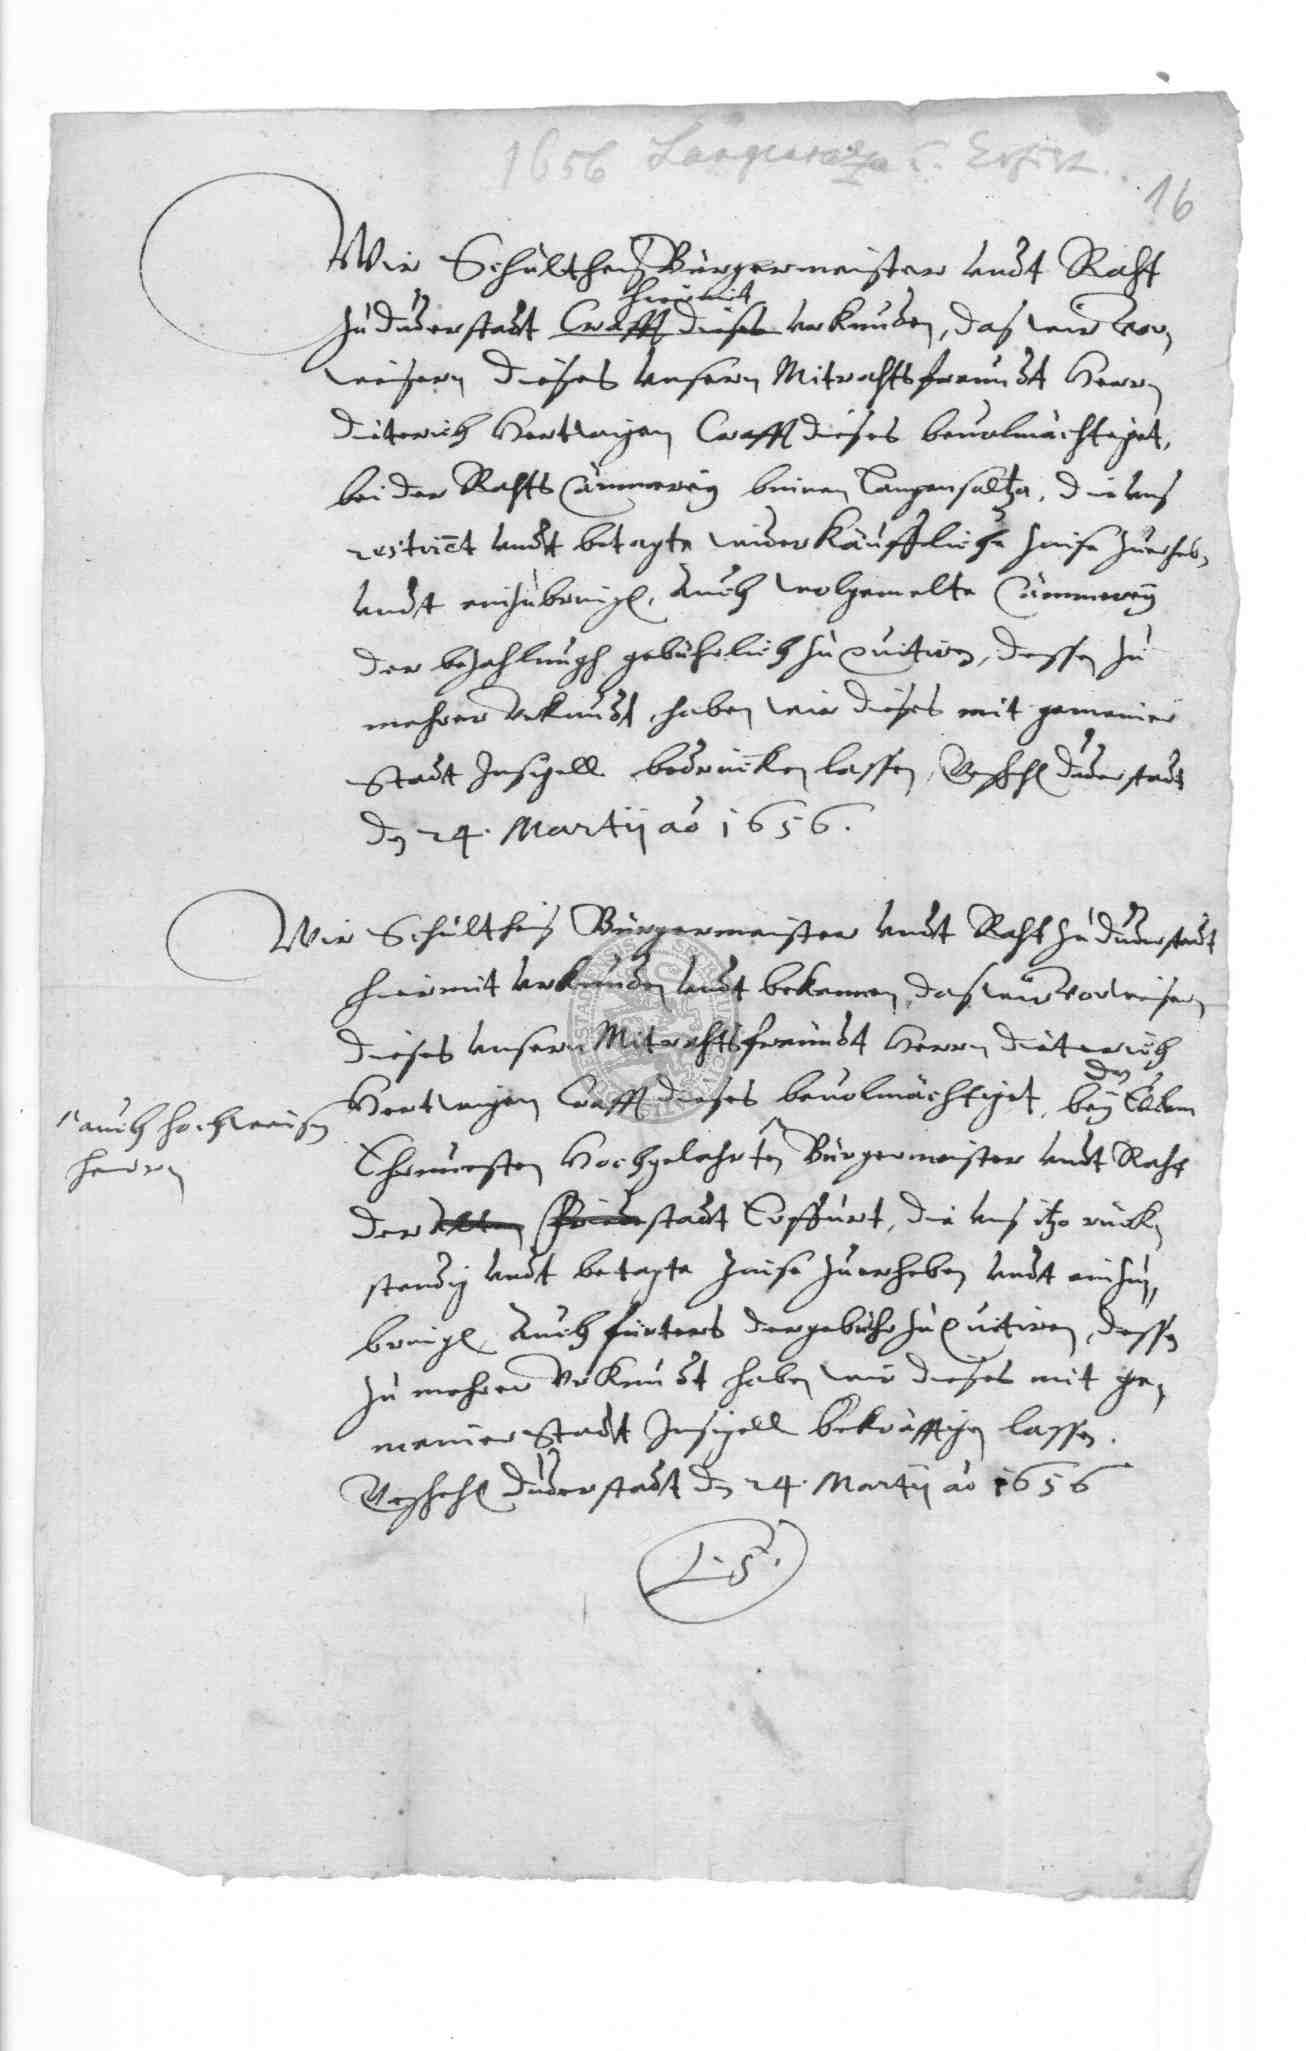 1656 Langensalza E. Erfurt.
16
Wir Schultheiß Bürgermeister undt Raht
hiermit
zu Duderstadt Crafft dieses urkunden, das wir vor-
weisern dieses unsern Mitrahtsfreundt Herrn
Dieterich Hertwigen Crafft dieses bevolmächtiget,
bei der Rahts Cämmerey binnen Langensaltza, die uns
undt betagte widerkäuffliche Zinse zuerheben
undt einzubringen, auch wolgemelte Cämmerey
der bezahlungh gebührlich zu quitiren, dessen zu
mehrer Urkundt, haben wir dieses mit gemeiner
Stadt Insigell bedrücken lassen, Duderstadt
den 24. Martij ao 1656.
Wir Schultheiß Bürgermeister undt Raht zu Duderstadt
hiermit urkunden undt bekennen, das wir vorweisern
dieses unsern Mitrahtsfreundt Herrn Dieterich
den
Hertwigen Crafft dieses bevolmächtiget, bey Edlen
auch hochweisen
herrn
Ehrnvesten Hochgelahrten Bürgermeister undt Raht
der stadt Erffurt, die uns itzo rück-
stendig undt betagte Zinse zuerheben undt einzu-
bringen auch fürters der gebühr zu quitiren, dessen
zu mehrer Urkundt haben wir dieses mit ge-
meiner Stadt Insigell bekräfftigen lassen.
Duderstadt den 24. Martij ao 1656
L. S.